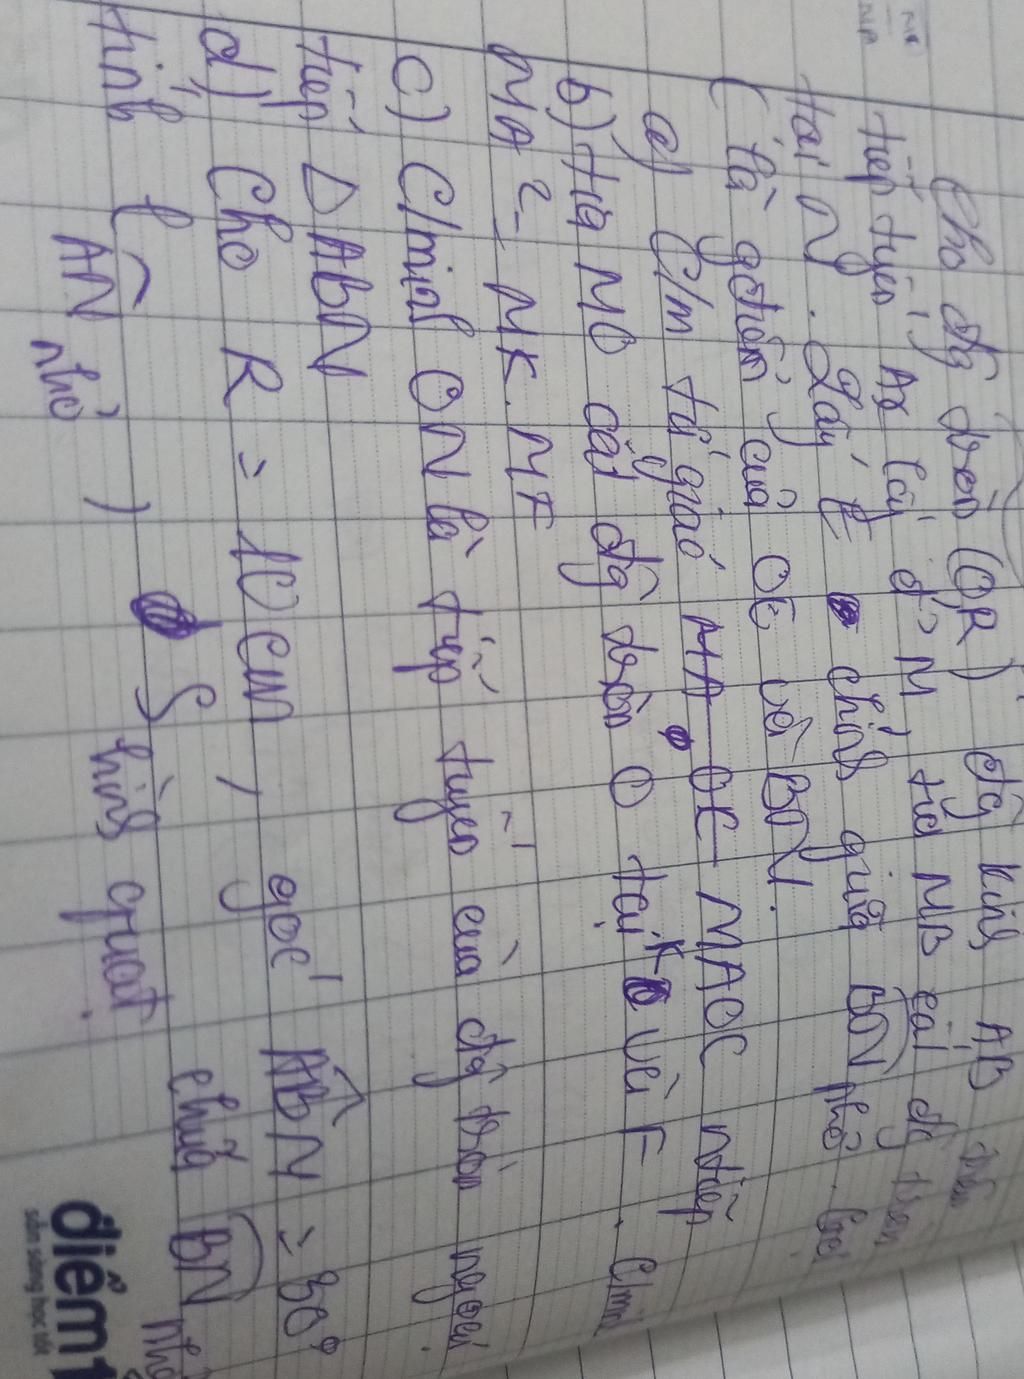 Cho đg tròn (O,R) đg kính AB trên
tiếp tuyến Ax lấy đ' M tia MB cắt đg tròn
tại N. Lấy E chính giữa BN nhỏ. Gọi
C là gđiểm của OE và BN.
a) C/m tứ giác MAOC ntiếp
b) tia MO cắt đg tròn O tại K và F. C/minh
MA² = MK.MF
c) C/minh ON là tiếp tuyến của đg tròn ngoại
tiếp Δ ABN
d) Cho R = 10 cm, góc ABN = 30°
tính l AN nhỏ) S hình quạt chứa BN nhỏ
điểm 1
sẵn sàng học tốt